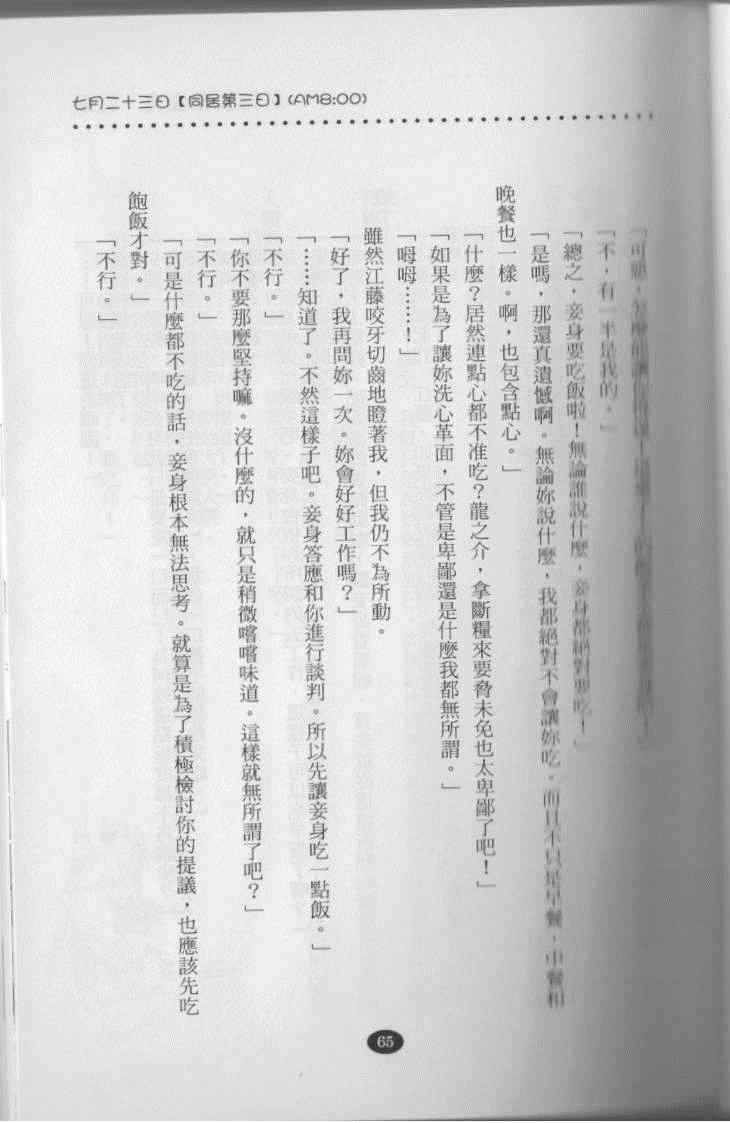 七月二十三日【同居第三日】(AM8:00)
「不,有一半是我的。」
「總之,妾身要吃飯啦!無論誰說什麼,妾身都絕對要吃!」
「是嗎,那還真遺憾啊。無論妳說什麼,我都絕對不會讓妳吃。而且不只是早餐,中餐和
晚餐也一樣。啊,也包含點心。」
「什麼?居然連點心都不准吃?龍之介,拿斷糧來要脅未免也太卑鄙了吧!」
「如果是為了讓妳洗心革面,不管是卑鄙還是什麼我都無所謂。」
「呣呣……!」
雖然江藤咬牙切齒地瞪著我,但我仍不為所動。
「好了,我再問妳一次。妳會好好工作嗎?」
「……知道了。不然這樣子吧。妾身答應和你進行談判。所以先讓妾身吃一點飯。」
「不行。」
「你不要那麼堅持嘛。沒什麼的,就只是稍微嚐嚐味道。這樣就無所謂了吧?」
「不行。」
「可是什麼都不吃的話,妾身根本無法思考。就算是為了積極檢討你的提議,也應該先吃
飽飯才對。」
「不行。」
65